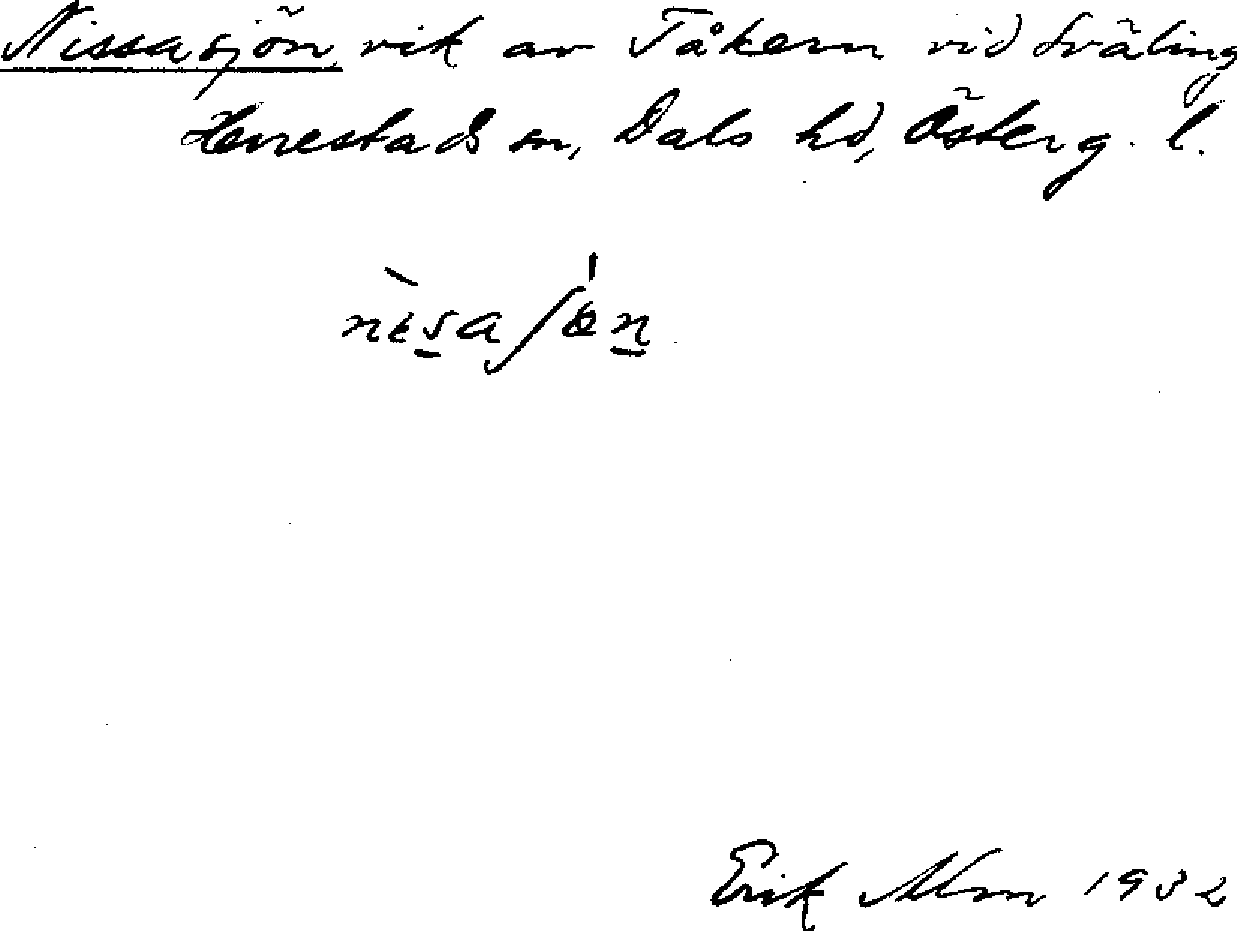 Nissasjön, vik av Tåkern vid Sväling
Herrestads sn, Dals hd, Österg. l.
Erik Alm 1932